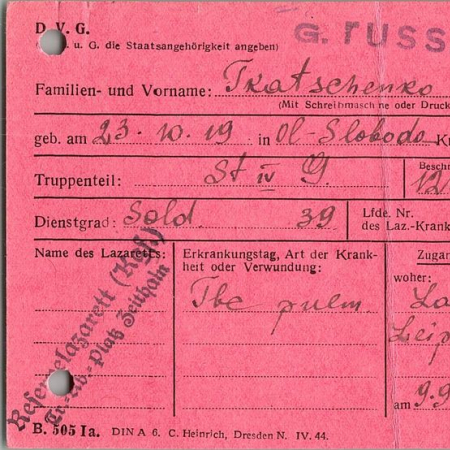 D. V. G.
G. russ
u. G. die Staatsangehörigkeit angeben)
Familien- und Vorname: Tkatschenko
(Mit Schreibmaschine oder Druck
geb. am 23. 10. 19 in Ol-Sloboda K
Truppenteil: St IV G. Besch
12
Dienstgrad: Sold. 39 Lfde. Nr.
des Laz.-Krank
Name des Lazaretts: Erkrankungstag, Art der Krank- Zugan
heit oder Verwundung: woher:
Tbc pulm. La
Leip
Reservelazarett (Kgf.)
Tr.-Üb.-Platz Zeithain
am 9.9
B. 505 Ia. DIN A 6. C. Heinrich, Dresden N. IV. 44.